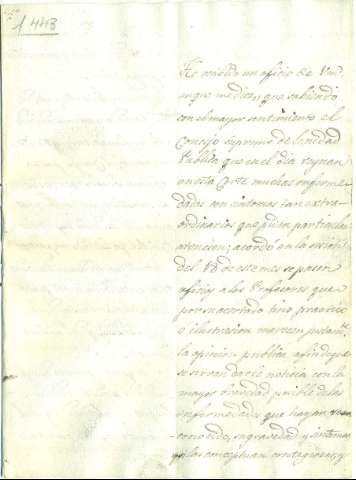 1443
He recibido un oficio de Vm.
en que me dice, que sabiendo
con el mayor sentimiento el
Consejo Supremo de Sanidad
Publica que en el dia reynan
en esta Corte muchas enferme
dades con sintomas tan extra-
ordinarios que piden particular
atencion; acordó en la
del 18 de este mes se pasen
oficios a los Profesores que
por su acertado tino practico
e ilustracion merecen justamte.
la opinion publica, a fin de que
se sirvan darle noticia con la
mayor brevedad posible de las
enfermedades que hayan
conocido, su gravedad y sintomas
y si las conceptuan contagiosas, y